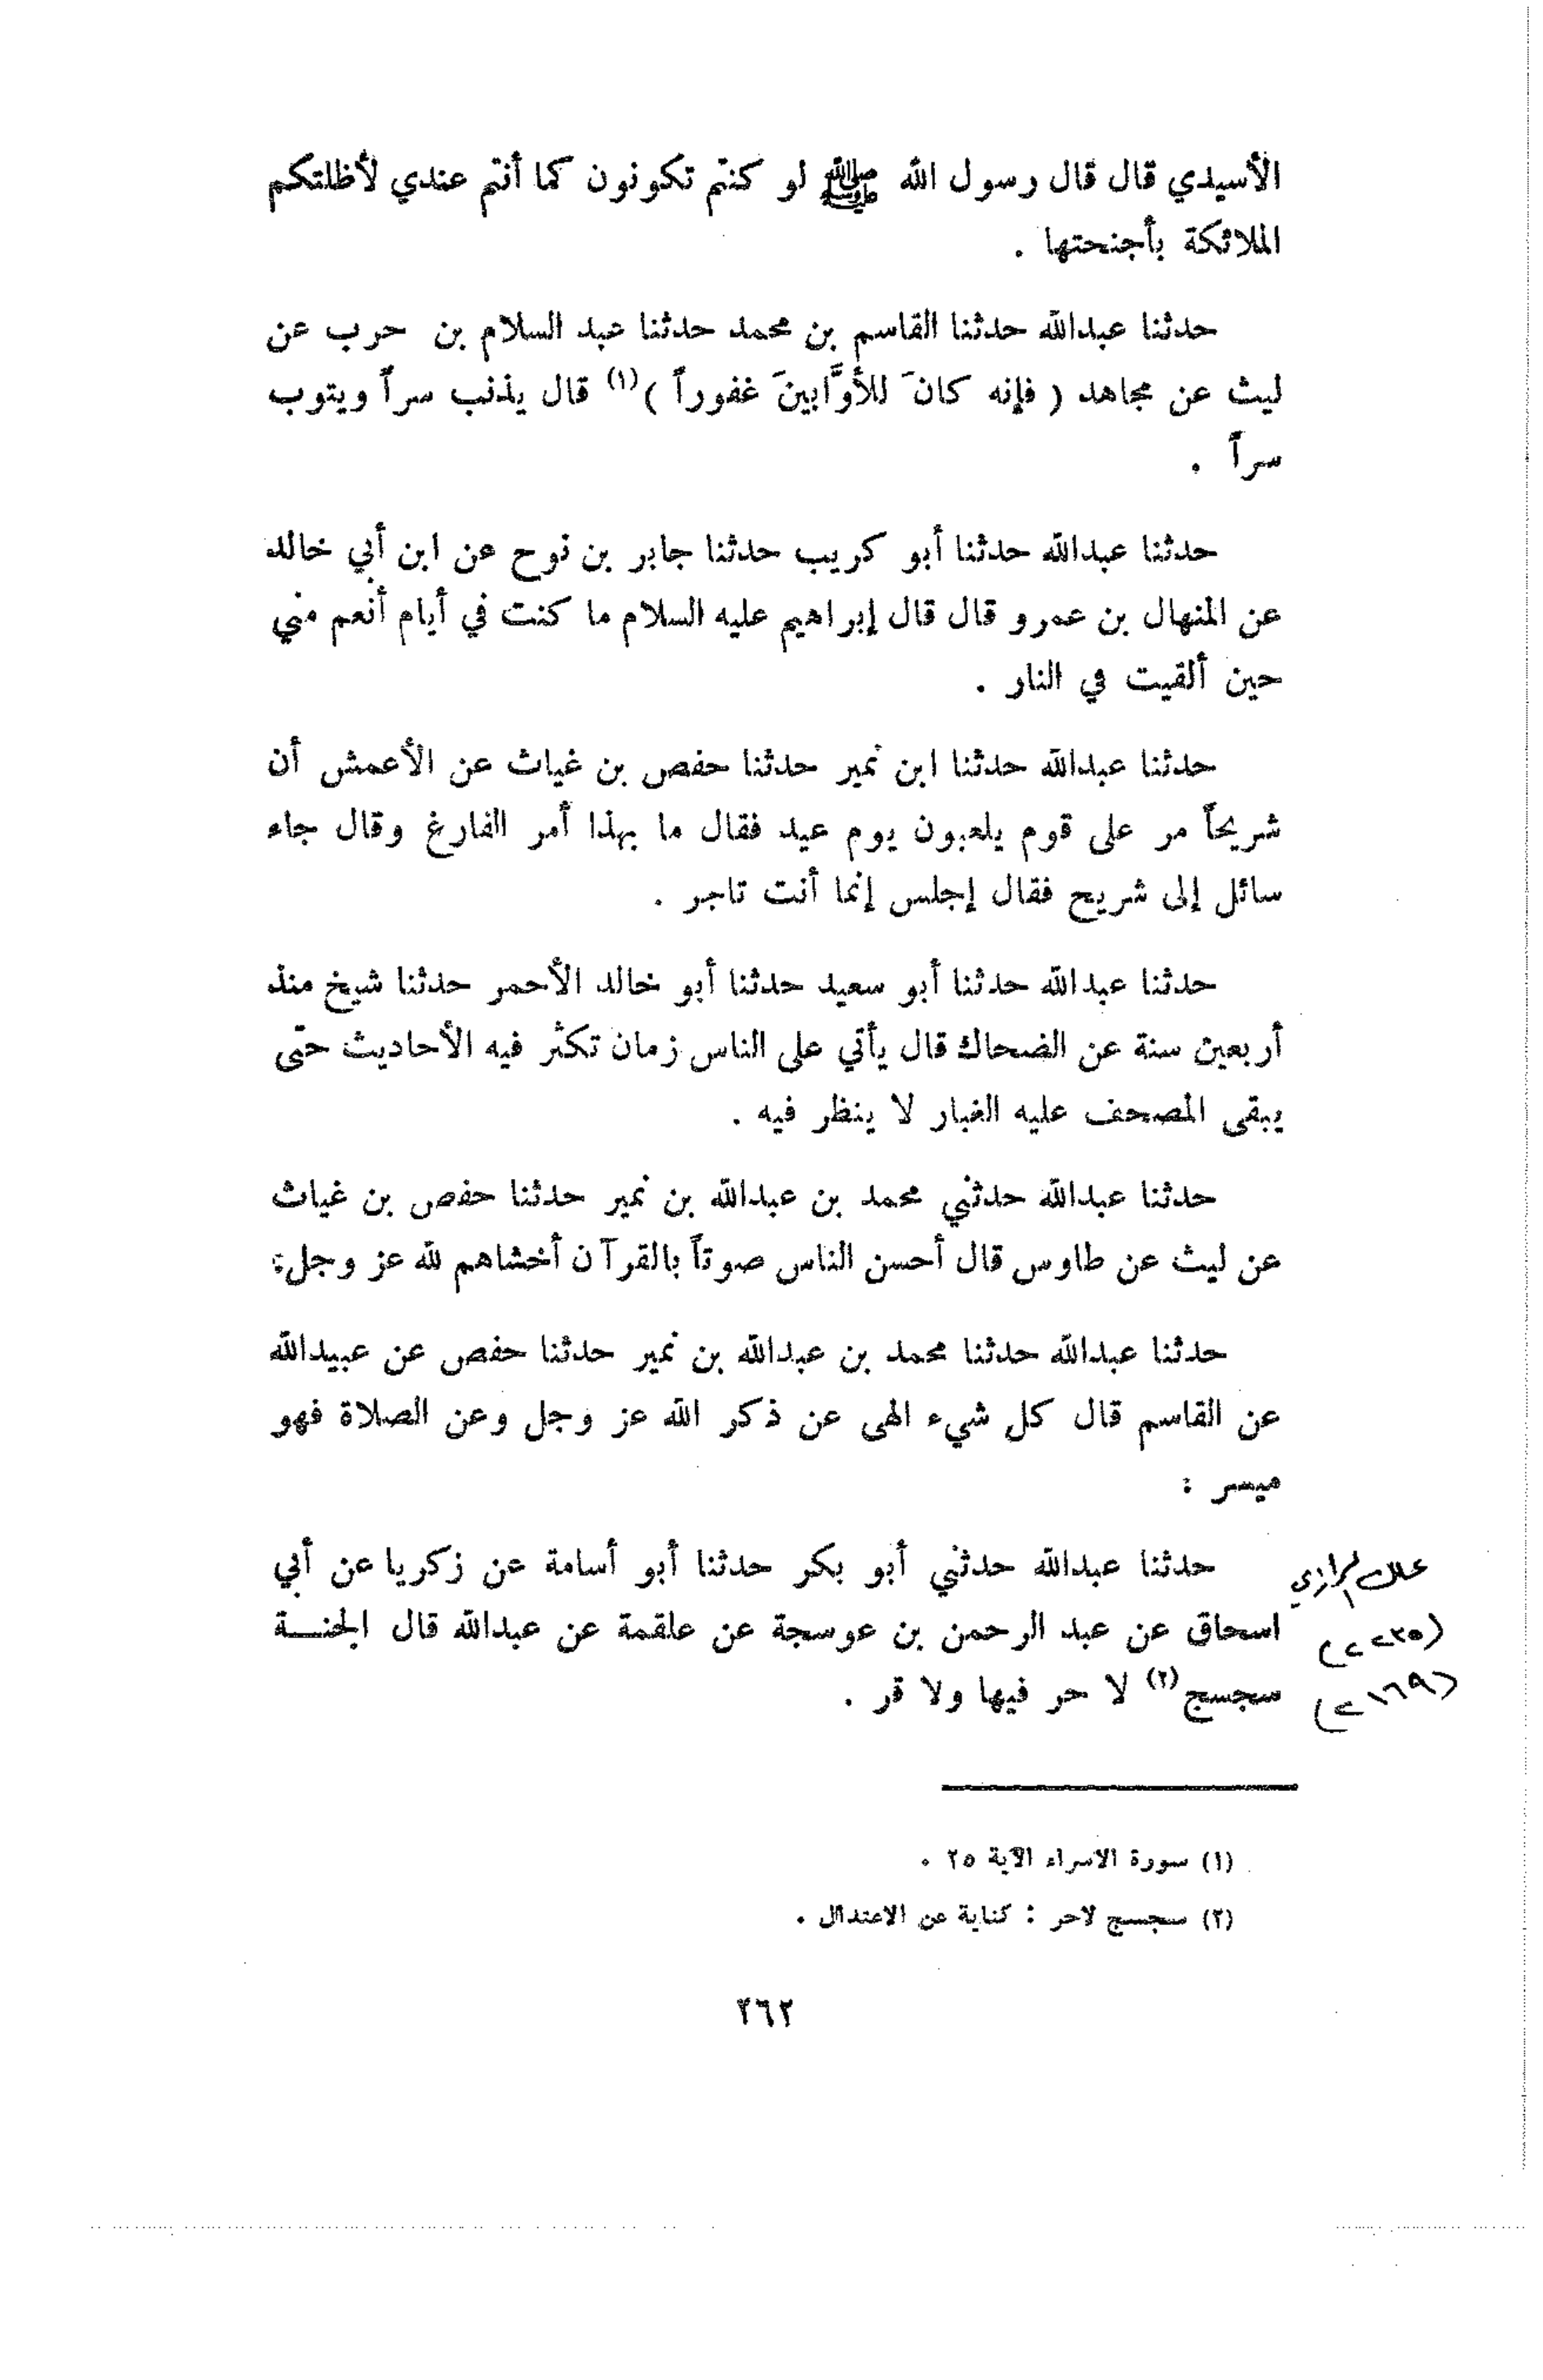 الأسيدي قال قال رسول الله ﷺ لو كنتم تكونون كما أنتم عندي لأظلتكم
الملائكة بأجنحتها .
حدثنا عبدالله حدثنا القاسم بن محمد حدثنا عبد السلام بن حرب عن
ليث عن مجاهد ( فإنه كانَ للأوَّابينَ غفوراً )(١) قال يذنب سراً ويتوب
سراً .
حدثنا عبدالله حدثنا أبو كريب حدثنا جابر بن نوح عن ابن أبي خالد
عن المنهال بن عمرو قال قال إبراهيم عليه السلام ما كنت في أيام أنعم مني
حين ألقيت في النار .
حدثنا عبدالله حدثنا ابن نمير حدثنا حفص بن غياث عن الأعمش أن
شريحاً مر على قوم يلعبون يوم عيد فقال ما بهذا أمر الفارغ وقال جاء
سائل إلى شريح فقال إجلس إنما أنت تاجر .
حدثنا عبدالله حدثنا أبو سعيد حدثنا أبو خالد الأحمر حدثنا شيخ منذ
أربعين سنة عن الضحاك قال يأتي على الناس زمان تكثر فيه الأحاديث حتى
يبقى المصحف عليه الغبار لا ينظر فيه .
حدثنا عبدالله حدثني محمد بن عبدالله بن نمير حدثنا حفص بن غياث
عن ليث عن طاوس قال أحسن الناس صوتاً بالقرآن أخشاهم لله عز وجل:
حدثنا عبدالله حدثنا محمد بن عبدالله بن نمير حدثنا حفص عن عبيدالله
عن القاسم قال كل شيء الهى عن ذكر الله عز وجل وعن الصلاة فهو
ميسر :
حدثنا عبدالله حدثني أبو بكر حدثنا أبو أسامة عن زكريا عن أبي
اسحاق عن عبد الرحمن بن عوسجة عن علقمة عن عبدالله قال الجنـــة
سجسج(٢) لا حر فيها ولا قر .
علل الرازي
(٢٢٣٥)
(٢١٦٩)
(١) سورة الاسراء الآية ٢٥ .
(٢) سجسج لاحر : كناية عن الاعتدال .
٣٦٢